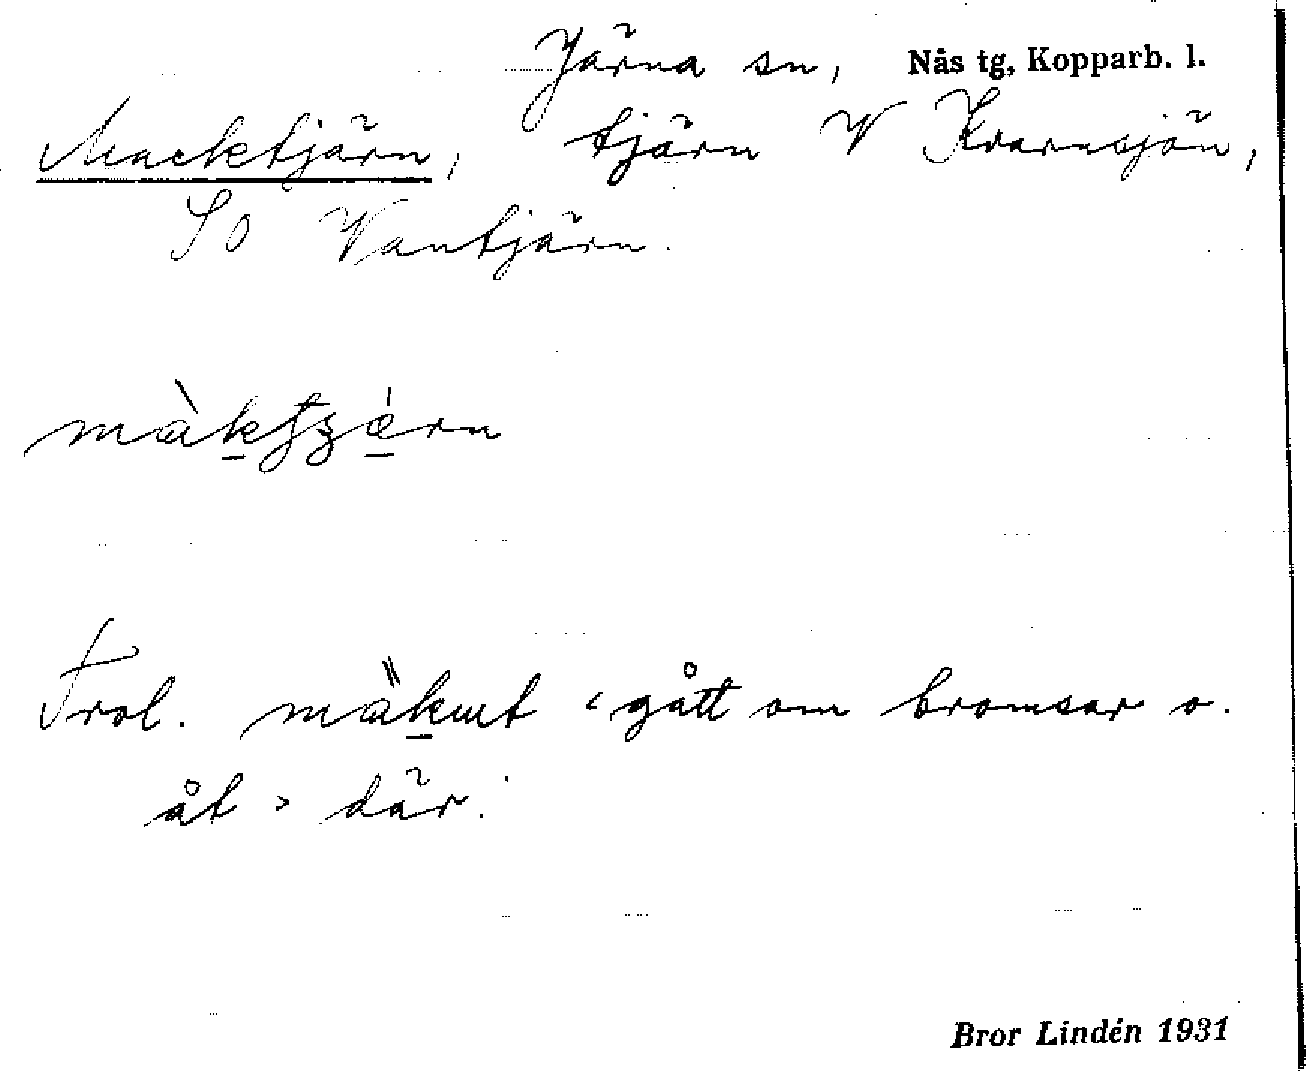 Järna sn, Nås tg, Kopparb. l.
Macktjärn, tjärn V Kvarnsjön,
SO Vantjärn.
Trol. gått om bromsar o.
åt > där.
Bror Lindén 1931